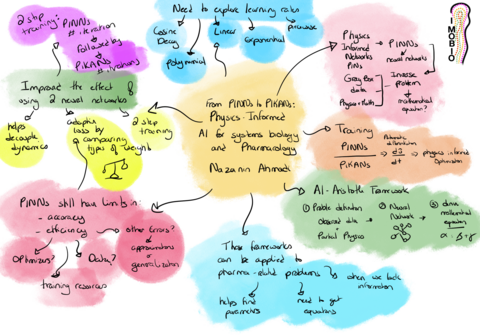 2 step
training:
PiNNs
# iteration
Followed by
PiKANs
# iterations
Need to explore learning rates
Cosine
Decay
Linear
Exponential
piecewise
Polynomial
IMOBIO
Physics
Informed
Networks
PINs
PiNNs
neural networks
Gray Box
+ data
Physics + Math
Inverse problem
mathematical
equation?
Improve the effect
using 2 neural networks
helps
decouple
dynamics
adaptive
loss by
comparing
types of
weight
2 step
training
From PiNNs to PiKANs:
Physics-Informed
AI for systems biology
and Pharmacology
Nazanin Ahmadi
Training
PiNNs
PiKANs
Automatic
differentiation
physics informed
Optimization
AI-Aristotle Framework
① Problem definition
Observed data
+
Partial Physics
② Neural
Network
③ derive
mathematical
equation
PiNNs still have limits in:
- accuracy
- efficiency
other Errors?
approximations
or
generalization
Optimizers?
Delay?
training resources
These frameworks
can be applied to
pharma-related problems
when we lack
information
helps find
parameters
need to get
equations